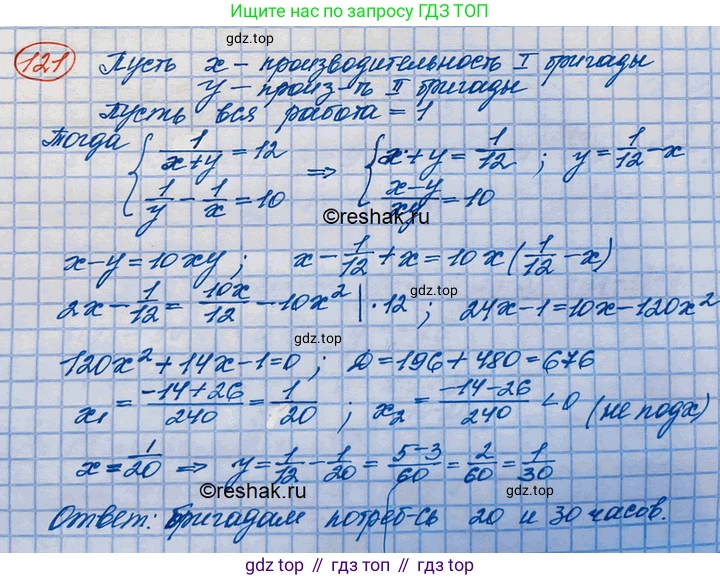 Ищите нас по запросу ГДЗ ТОП
gdz.top
121 Пусть x – производительность I бригады
y – произ-ть II бригады
Пусть вся работа = 1
Тогда { 1/(x+y) = 12 ; 1/y − 1/x = 10 ⇒ { x + y = 1/12 ; (x−y)/xy = 10 ; y = 1/12 − x
©reshak.ru
x−y = 10xy ; x − 1/12 + x = 10x(1/12 − x)
gdz.top
2x − 1/12 = 10x/12 − 10x² | · 12 ; 24x − 1 = 10x − 120x²
120x² + 14x − 1 = 0 ; D = 196 + 480 = 676
x₁ = (−14+26)/240 = 1/20 ; x₂ = (−14−26)/240 < 0 (не подх)
x = 1/20 ⇒ y = 1/12 − 1/20 = (5−3)/60 = 2/60 = 1/30
©reshak.ru
Ответ: бригадам потреб-сь 20 и 30 часов.
gdz.top // гдз.топ // gdz.top // гдз.топ